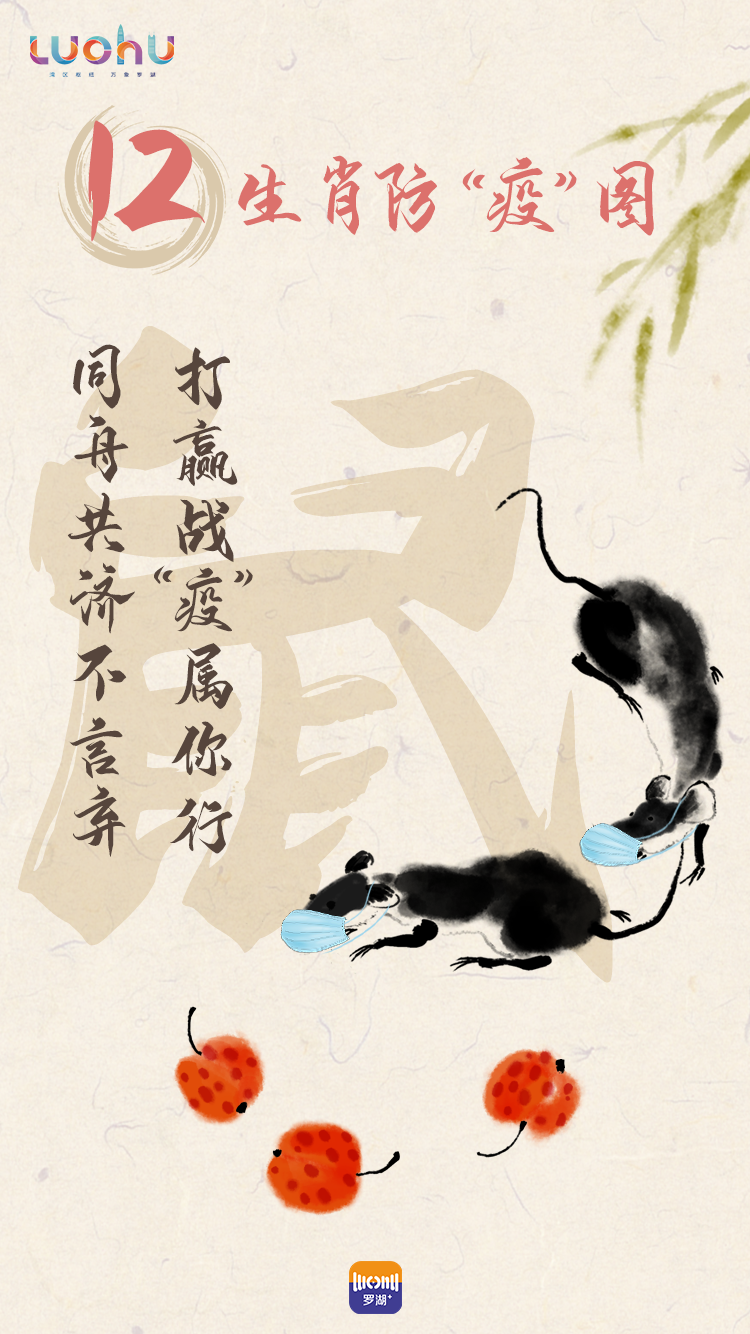 LUOHU
湾区枢纽 万象罗湖
12生肖防“疫”图
鼠
打赢战“疫”属你行
同舟共济不言弃
LUOHU
罗湖+